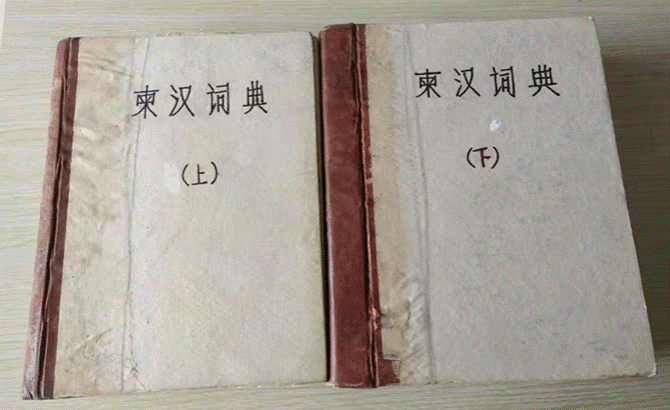 柬汉词典
(上)
柬汉词典
(下)